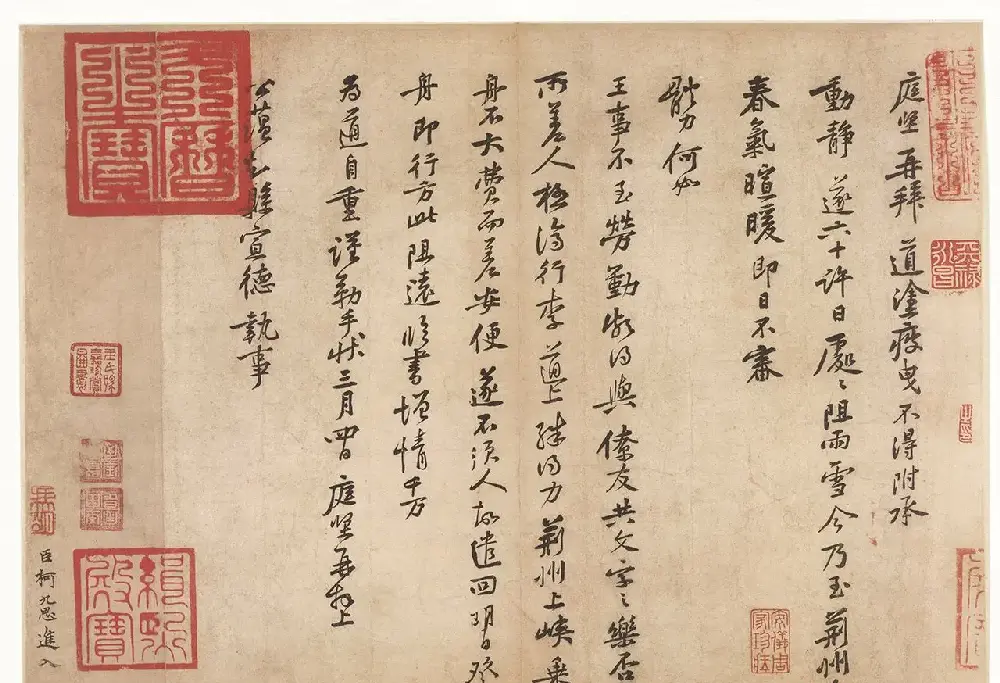 庭堅再拜 道塗疲曳不得附承
動靜 遂六十許日處〻阻雨雪今乃至荊州
春氣暄暖即日不審
體力何如
王事不至勞勤頗得與僚友共文字之樂否
所差人極濟行李道上殊得力荊州上峽乘
舟不大費而差安便遂不須人故遣回明日發
舟即行方此阻遠臨書增情千万
為道自重謹勒手狀三月四日庭堅再拜上
公蘊知縣宣德執事
天曆之寶
緝熙殿寶
安儀周家珍藏
臣柯九思進入